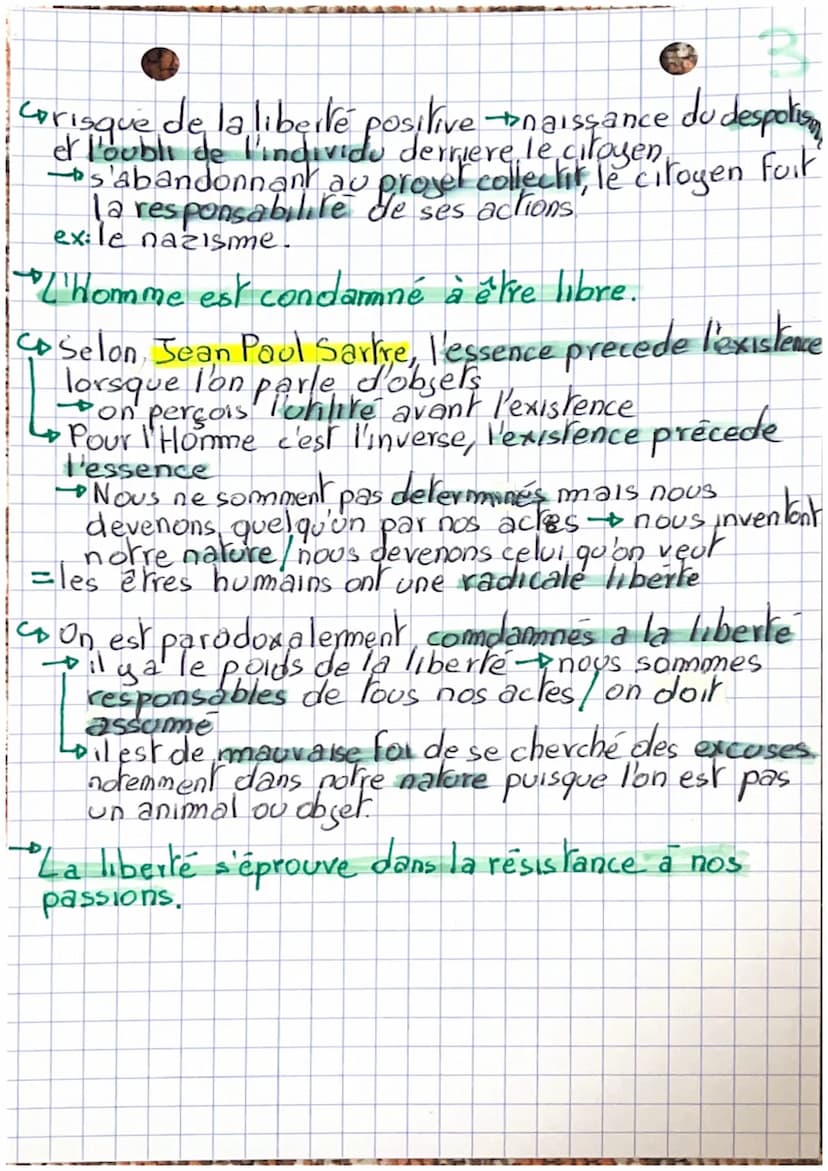 3
↪risque de la liberté positive → naissance du despotism
et l'oubli de l'individu derriere le citoyen
→ s'abandonnant au projet collectif, le citoyen fuit
la responsabilité de ses actions
ex: le nazisme.
→ L'Homme est condamné à être libre.
↪ Selon Jean Paul Sartre, l'essence precede l'existence
lorsque l'on parle d'objets
→ on perçois l'utilité avant l'existence
↳ Pour l'Homme c'est l'inverse, l'existence précede
l'essence
→ Nous ne somment pas determinés mais nous
devenons quelqu'un par nos actes → nous inventont
notre nature / nous devenons celui qu'on veut
= les êtres humains ont une radicale liberte
↪ On est paradoxalerment comdamnés a la liberté
→ il y a le poids de la liberté → nous sommes
responsables de tous nos actes / on doit
assumé
↳ il est de mauvaise foi de se cherché des excuses
notemment dans notre nature puisque l'on est pas
un animal ou objet.
→ La liberté s'éprouve dans la résistance à nos
passions.